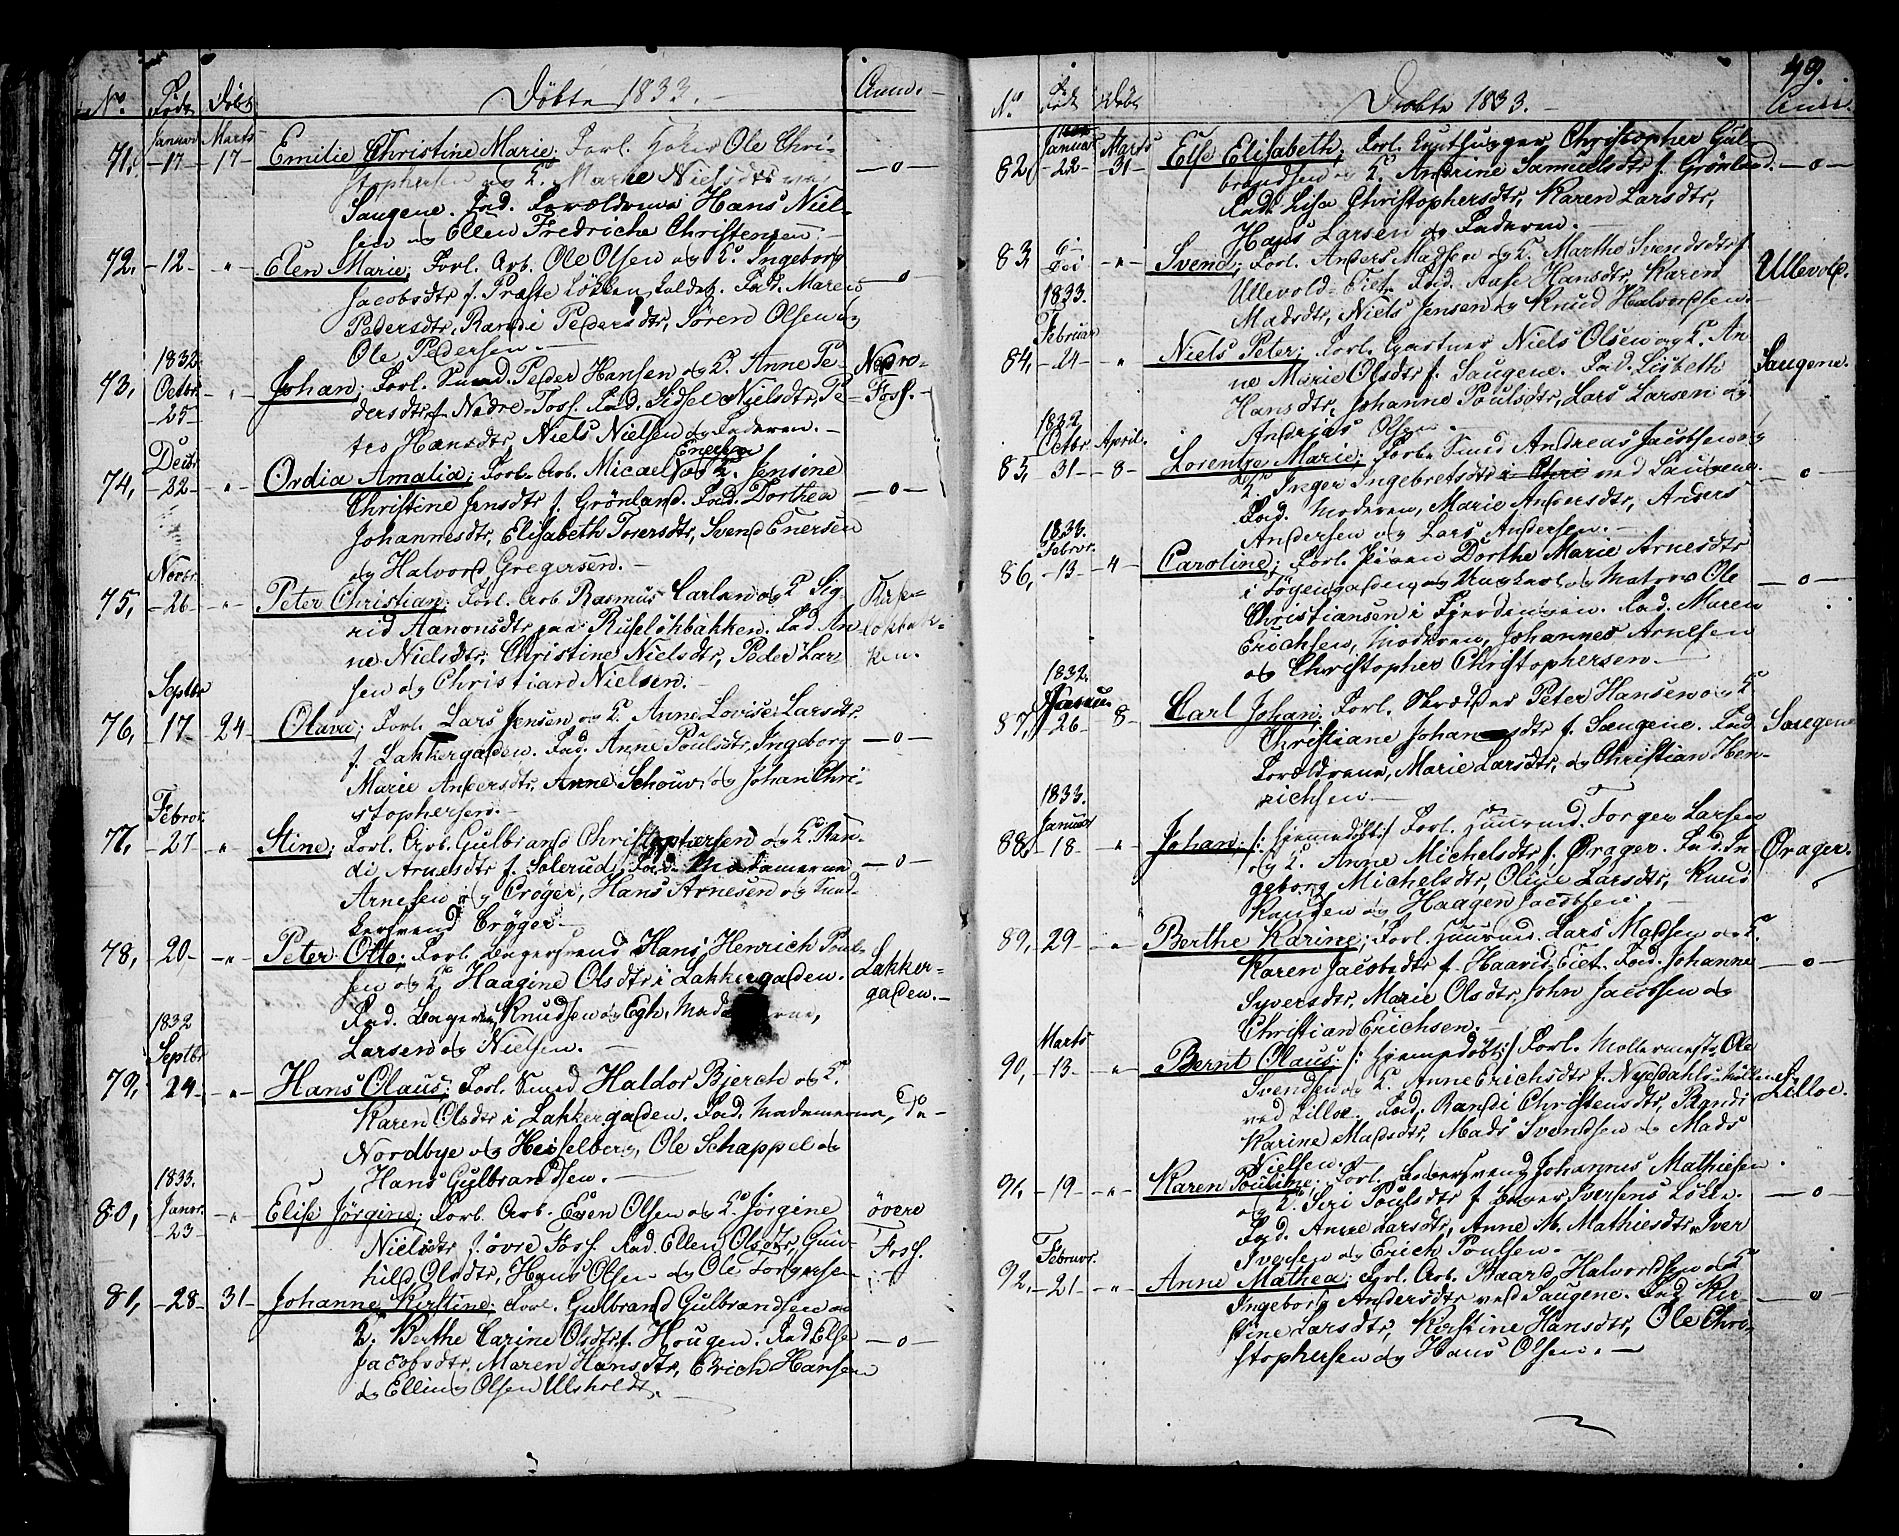 No Født Døbt Döbte 1833. Anm.
Januar Marts
71, -17- 17- Emilie Christine Marie; Forl. Ole Chri-
stophersen og K. Marie Nielsdtr ved
Saugene. Fad. Forældrene Hans Niel-
sen og Ellen Fredriche Christensen. -o-
72, -12- " Elen Marie; Forl. Arb. Ole Olsen og K. Ingeborg
Jacobsdtr f. Præste Løkken kaldet. Fad. Maren -o-
Pedersdtr, Randi Pedersdtr, Sören Olsen og
Ole Pedersen.
1832
73, Octbr 25 " Johan; Forl. Smed Peder Hansen og K. Anne Pe- Nedre-
dersdtr f. Nedre-Foss. Fad. Sidsel Nielsdtr, Pe- Foss.
tro Hansdtr, Niels Nielsen og Faderen.
Decbr Enersen
74, -22- " Ordia Amalia; Forl. Arb. Micael og K. Jensine
Christine Jensdtr f. Grönland. Fad. Dorthea -o-
Johannesdtr, Elisabeth Torersdtr, Svend Enersen
og Halvord Gregersen.
Novbr
75, -26- " Peter Christian; Forl. Arb. Rasmus Carlan og K. Sig- Ruse-
rid Aanonsdtr paa Ruselökbakken. Fad. An- lökbak-
ne Nielsdtr, Christine Nielsdtr, Peder Lar- ken.
sen og Christian Nielsen.
Septbr
76, -17- 24- Olava; Forl. Lars Jensen og K. Anne Lovise Larsdtr
f. Lakkergaden. Fad. Anne Poulsdtr, Ingeborg -o-
Marie Andersdtr, Anne Schouw og Johan Chri-
stophersen.
Febror
77, -27- " Stine; Forl. Arb. Gulbrand Christophersen og K. Ran-
di Arnesdtr f. Solerud; Fad. Madamerne -o-
Arnesen og Cröger, Hans Arnesen og
Cröger.
78, -20- -"- Peter Otto; Forl. Bagersvend Hans Henrich Poul-
sen og K. Haagine Olsdtr i Lakkergaden. Lakker-
Fad. Bager Knudsen og Egh, Madamerne, gaden.
Larsen og Nielsen.
1832
Septbr
79, 24- " Hans Olaus; Forl. Smed Haldor Bjerch og K.
Karen Olsdtr i Lakkergaden. Fad. Madamerne, do-
Nordbye og Heiselberg, Ole Schappel og
Hans Gulbrandsen.
1833.
80, Januar 23- " Elise Jörgine; Forl. Arb. Even Olsen og K. Jörgine övere
Nielsdtr f. övre Foss. Fad. Ellen Olsdtr, Gun- Foss.
hild Olsdtr, Hans Olsen og Ole Torgersen
81, -28- 31- Johanne Kirstine; Forl. Gulbrand Gulbrandsen og
K. Berthe Carine Olsdtr f. Hougen. Fad Else -o-
Jacobsdtr, Maren Hansdtr, Erich Hansen
og Elling Olsen Ulsholdt.
49.
No Født Døbt Døbte 1833. Anm.
Januar Marts
82, -22- 31- Else Elisabeth; Forl. Christopher Gul-
brandsen og K. Andrine Samuelsdtr f. Grönland. -o-
Fad. Lisa Christophersdtr, Karen Larsdtr,
Hans Larsen og Faderen.
83, " Svend; Forl. Anders Madsen og K. Marthe Svendsdtr f.
Ullevold-Eiet. Fad. Aase Hansdtr, Karen Ullevold.
1833. Madsdtr, Niels Jensen og Knud Halvordsen.
Februar
84, -24- " Niels Peter; Forl. Gartner Niels Olsen og K. An-
ne Marie Olsdtr f. Saugene. Fad. Lisbeth Saugene.
Hansdtr, Johanne Poulsdtr, Lars Larsen og
Andrias Olsen.
1832
Octbr April.
85, 31- -8- Lorentze Marie; Forl. Smed Andreas Jacobsen og
K. Inger Ingebretsdtr ved Saugene. -o-
Fad. Moderen, Marie Andersdtr, Anders
Andersen og Lars Andersen.
1833.
Febror.
86, -13- -4- Caroline; Forl. Pigen Dorthe Marie Arnesdtr
i og Ungkarl og Matros Ole -o-
Christiansen i Fjerdingen. Fad. Maren
Erichsen, Moderen, Johannes Arnesen
og Christopher Christophersen.
1832.
Januar
87, 26 -8- Carl Johan; Forl. Skrædder Peter Hansen og K.
Christiane Johansdtr f. Saugene. Fad. Saugene
Forældrene, Marie Larsdtr, og Christian Hen-
richsen.
1833.
Januar
88, -18- " Johan; /: hjemmedöbt:/ Forl. Huusmd. Torger Larsen
og K. Anne Michelsdtr f. Ørager. Fad. In- Ørager.
geborg Michelsdtr, Oline Larsdtr, Knud
Knudsen og Haagen Jacobsen.
89, 29 -"- Berthe Karine; Forl. Huusmd. Lars Madsen og K.
Karen Jacobsdtr f. Haavid-Eiet. Fad. Johanne -o-
Syversdtr, Marie Olsdtr, John Jacobsen og
Christian Erichsen.
Marts
90, -13- " Bernt Olaus; /: hjemmedöbt:/ Forl. Mollermester Ole
Svendsen og K. Anne Erichsdtr f. Nyedahls-Möllen
ved Lilloe. Fad. Randi Christensdtr, Randi Lilloe.
Karine Madsdtr, Mads Svendsen og Mads
Nielsen.
91, -19- " Karen Pouline; Forl. Johannes Mathiesen.
og K. Siri Poulsdtr f. Bager Iversens Löke. -o-
Fad. Anne Larsdtr, Anne M. Mathiesdtr, Iver
Iversen og Erich Poulsen.
Februar.
92, -21- " Anne Mathea; Forl. Arb. Baard Halvordsen og K.
Ingeborg Andersdtr ved Saugene. Fad. Kir- -o-
stine Larsdtr, Kirstine Hansdtr, Ole Chri-
stophersen og Hans Olsen.